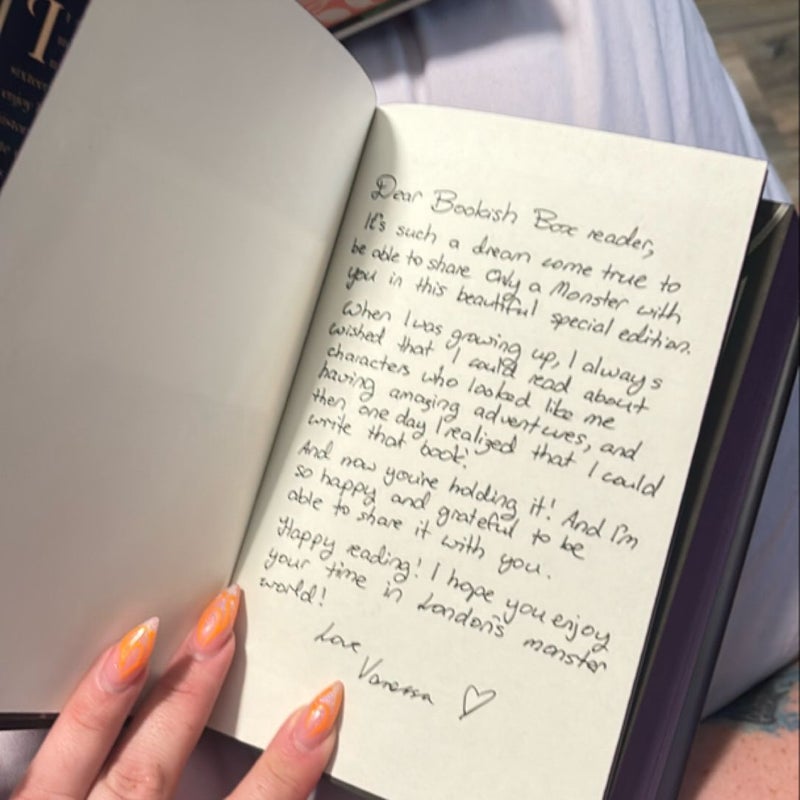 Dear Bookish Box reader,
It's such a dream come true to
be able to share Only a Monster with
you in this beautiful special edition.
When I was growing up, I always
wished that I could read about
characters who looked like me
having amazing adventures, and
then one day I realized that I could
write that book!
And now you're holding it! And I'm
so happy and grateful to be
able to share it with you.
Happy reading! I hope you enjoy
your time in London's monster
world!
Love
Vanessa ♡